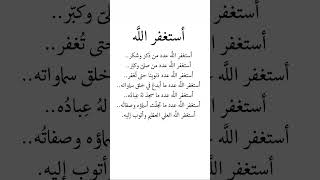 أستغفر اللَّه
أستغفر اللَّه عدد من ذكر وشكر..
أستغفر اللَّه عدد من صلىٰ وكبّر..
أستغفر اللَّه عدد ذنوبنا حتى تُغفر..
أستغفر اللَّه عدد ما أبدع في خلق سماواته..
أستغفر اللَّه عدد ما سجد لهُ عبادُه..
أستغفر اللَّه عدد ما تجلّت أسماؤه وصفاتُه..
أستغفر اللَّه العلي العظيم وأتوب إليه.